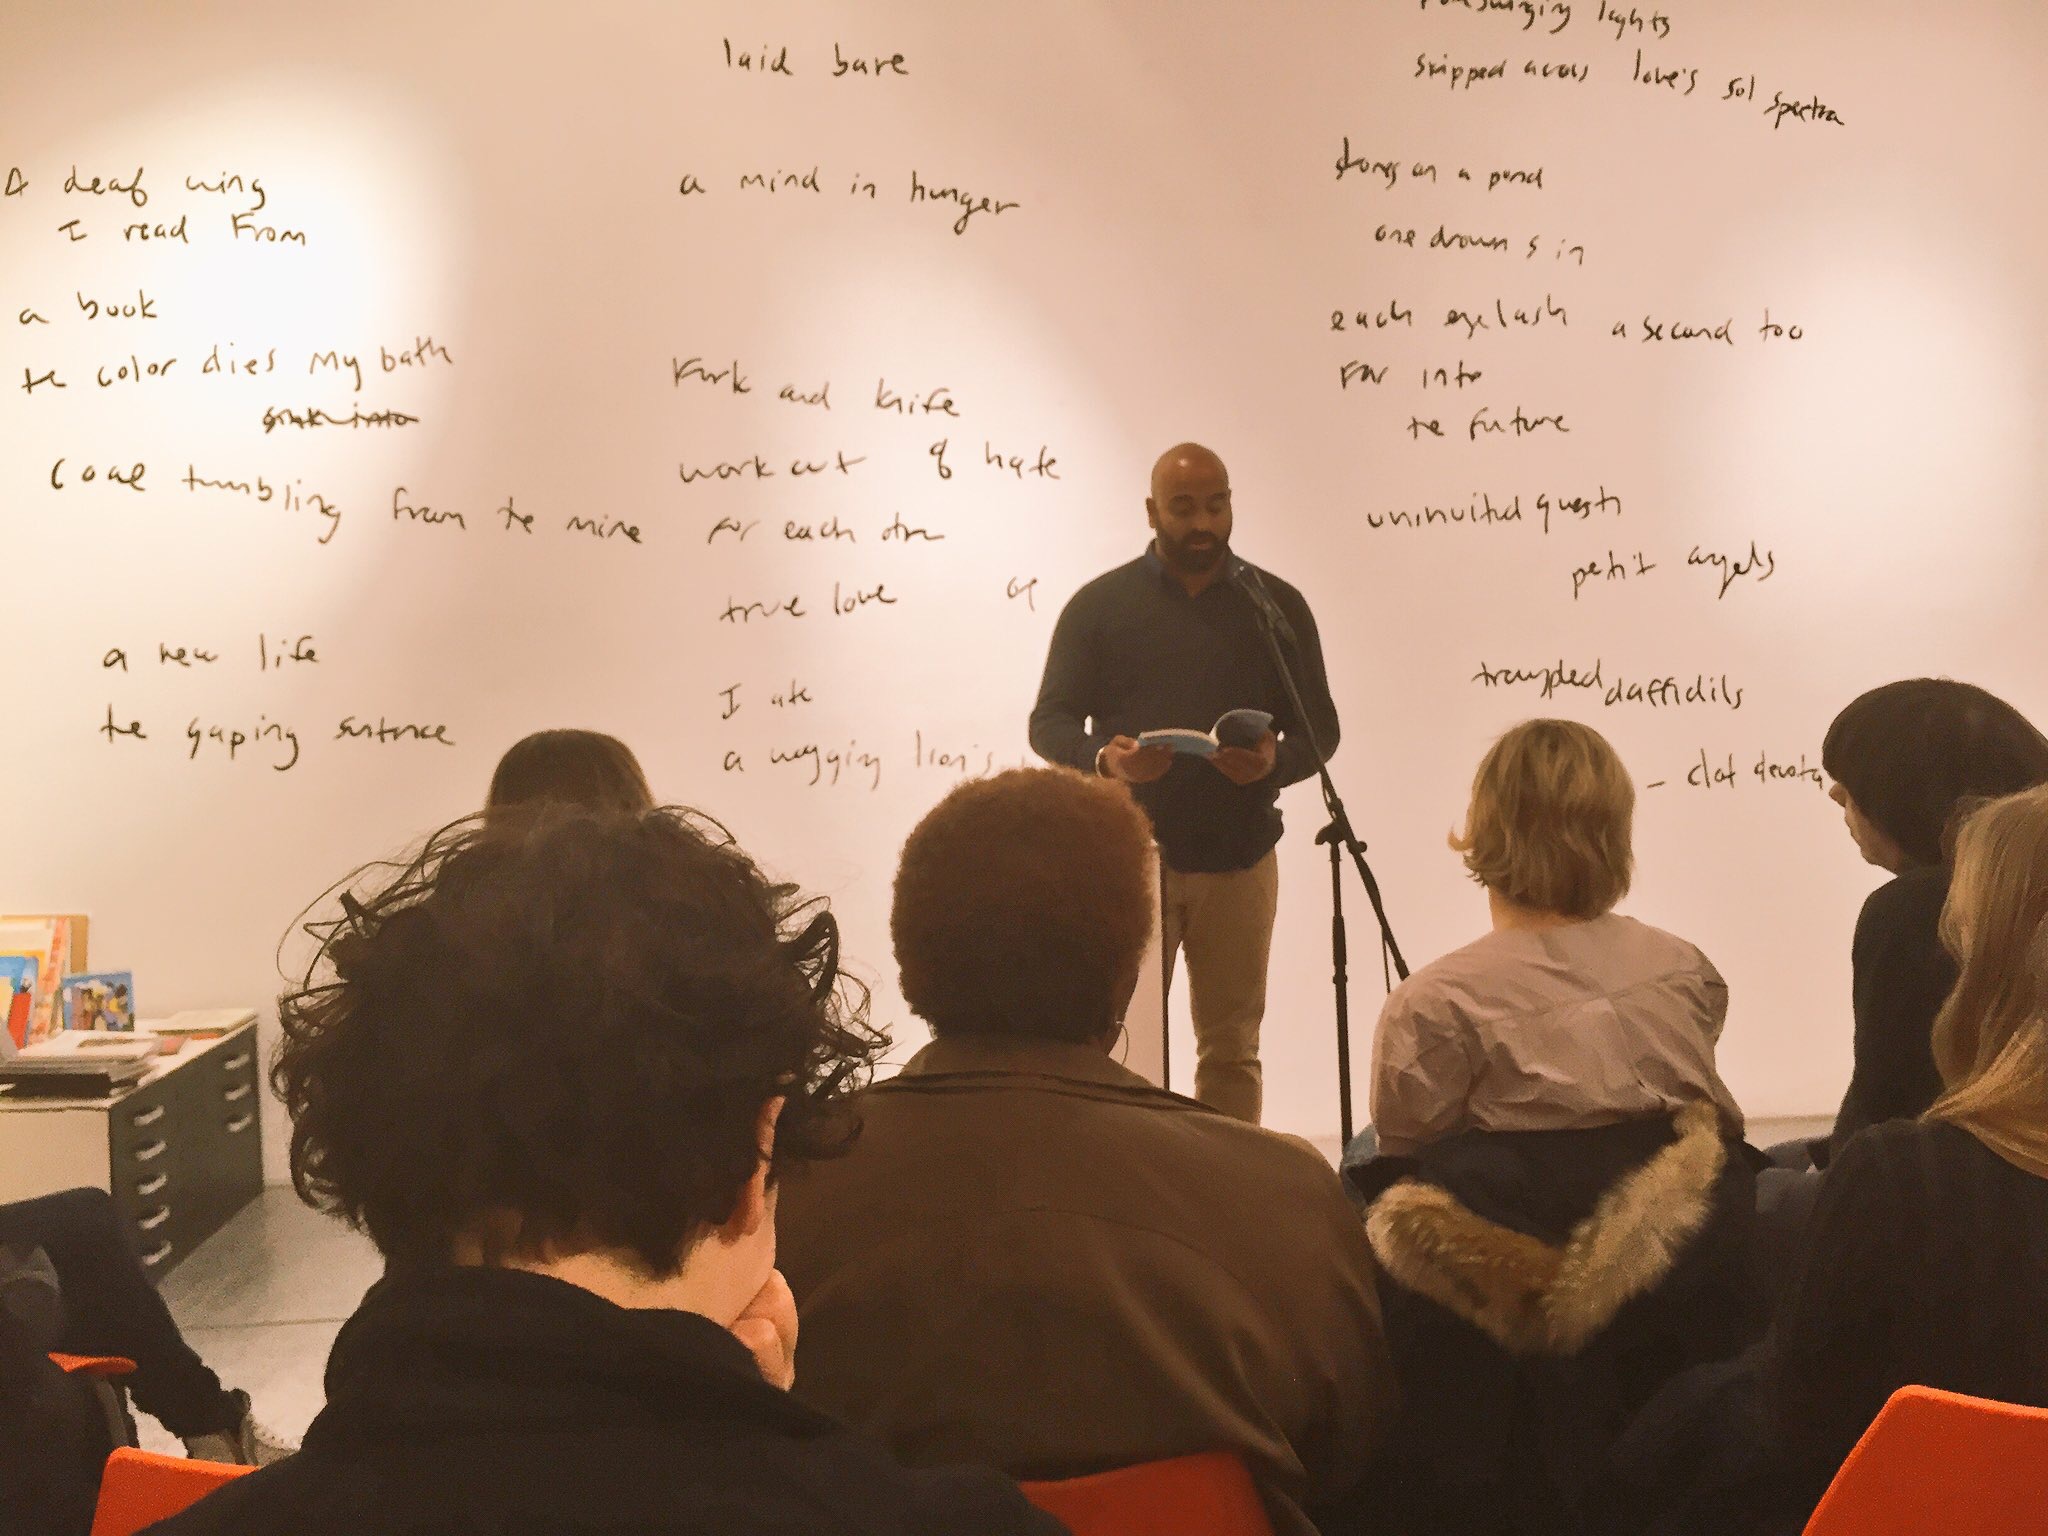 A deaf wing
I read From
a book
te color dies my bath
sink into
Coal tumbling from te mine
a new life
te gaping sentence
laid bare
a mind in hunger
Fork and knife
work out of hate
for each othr
true love of
I ate
a wagging lion's
lights
skipped across love's sol spectra
on a pond
one drowns in
each eyelash a second too
Far into
te future
uninvited guests
petit angels
trampled daffidils